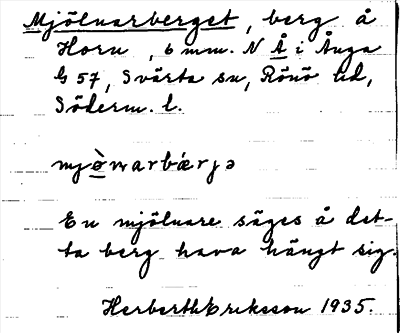 Mjölnarberget, berg å
Horn, 6 mm. N Å i Ånga
G 57, Svärta sn, Rönö hd,
Söderm. l.
mjò̱narbǽrjə
En mjölnare säges å det-
ta berg hava hängt sig.
Herberth Eriksson 1935.